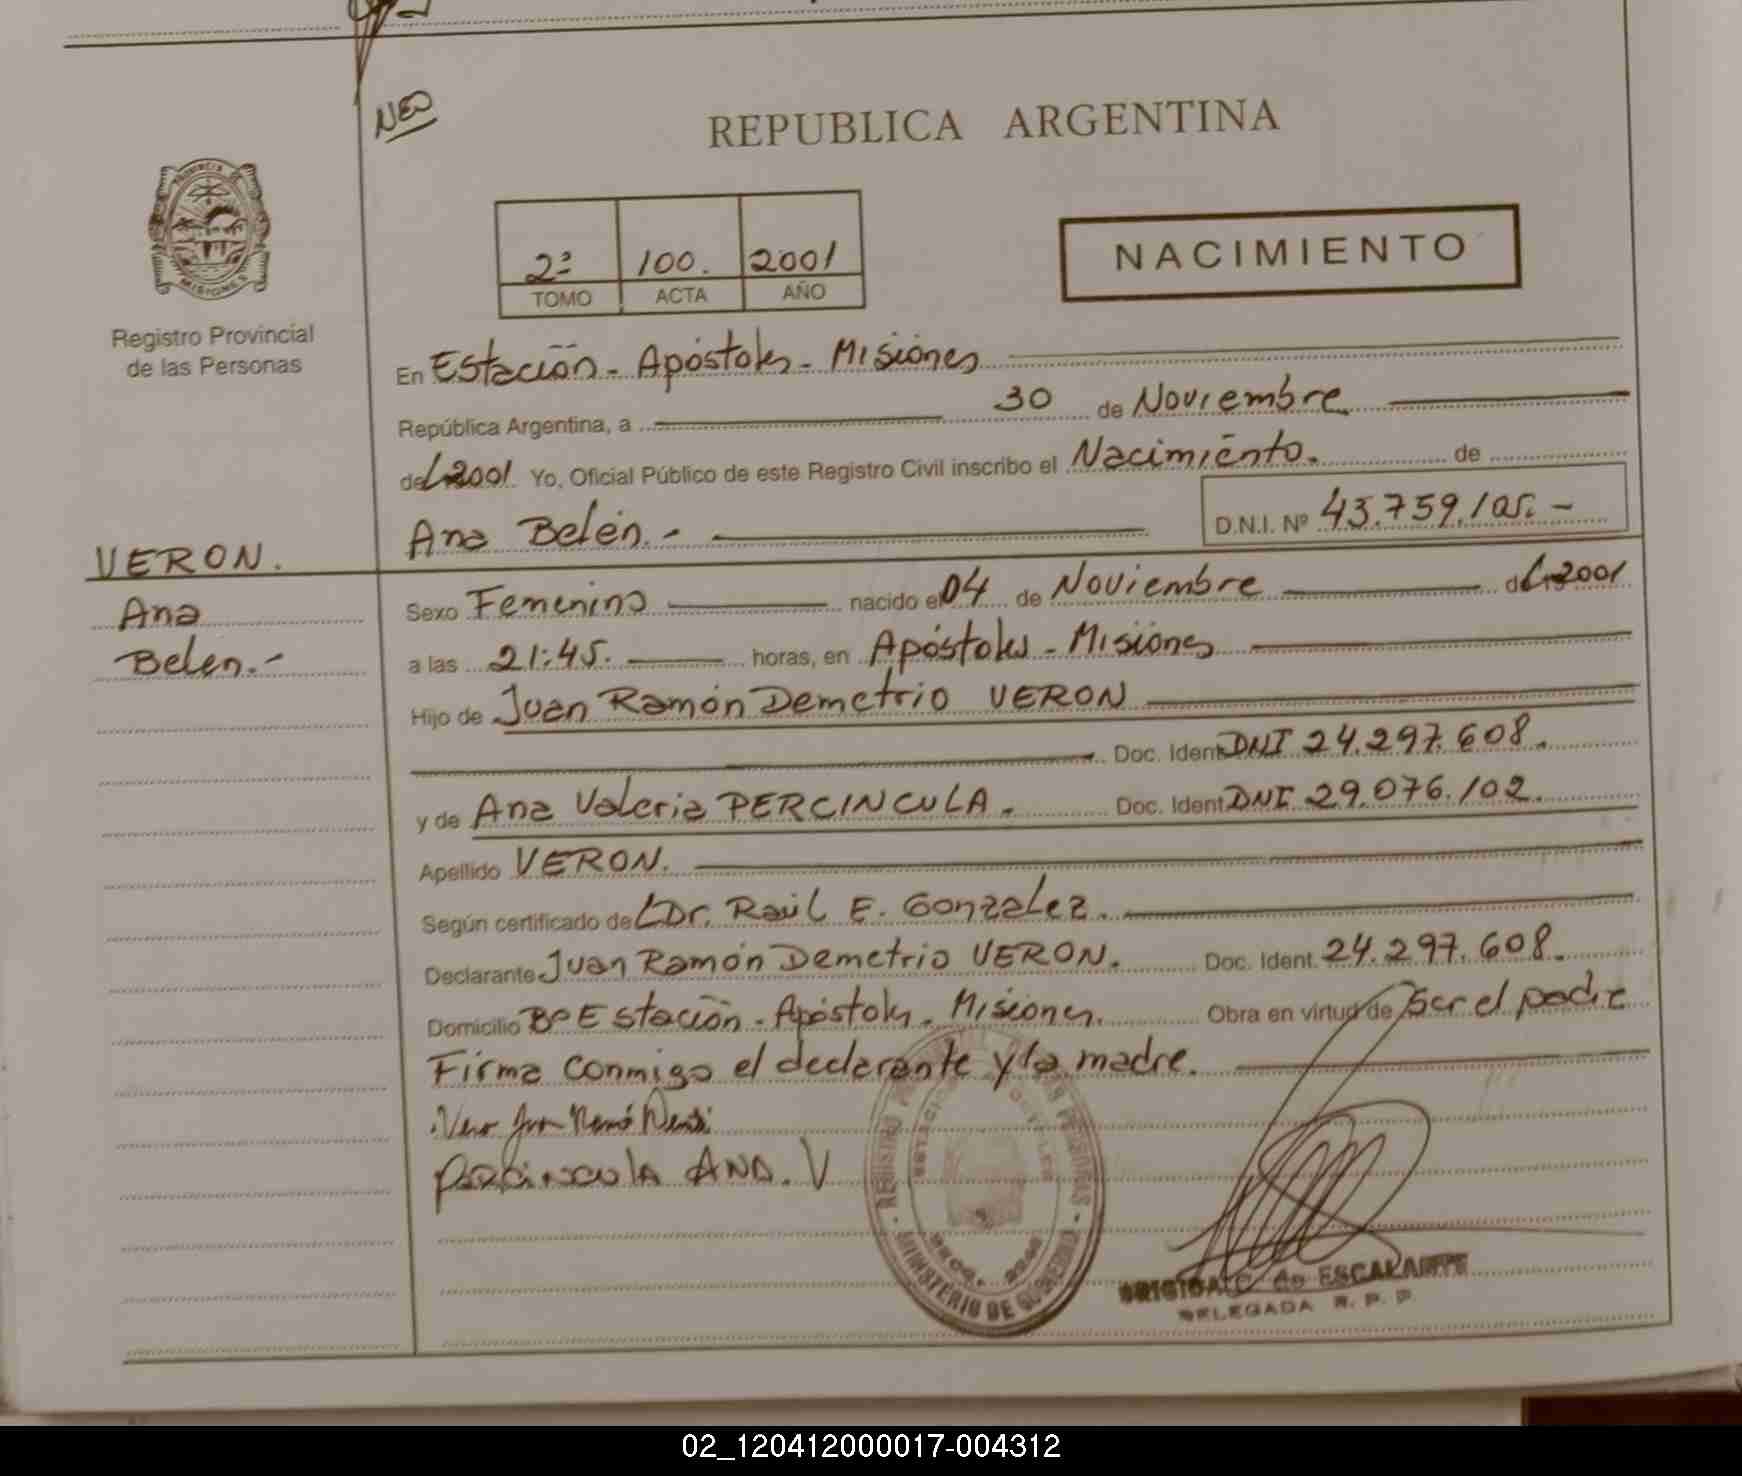 NEO
REPUBLICA ARGENTINA
PROVINCIA DE
MISIONES
Registro Provincial
de las Personas
2ª 100. 2001
TOMO ACTA AÑO
NACIMIENTO
En Estación - Apóstoles - Misiones
República Argentina, a 30 de Noviembre
del 2001 Yo, Oficial Público de este Registro Civil inscribo el Nacimiento. de
Ana Belén.- D.N.I. Nº 43.759.105.-
VERON.
Ana
Belen.-
Sexo Femenino nacido el 04 de Noviembre del 2001
a las 21:45. horas, en Apóstoles - Misiones
Hijo de Juan Ramón Demetrio VERON
Doc. Ident. DNI 24.297.608.
y de Ana Valeria PERCINCULA. Doc. Ident. DNI 29.076.102.
Apellido VERON.
Según certificado del Dr. Raúl E. Gonzalez.
Declarante Juan Ramón Demetrio VERON. Doc. Ident. 24.297.608.
Domicilio Bº Estación - Apóstoles - Misiones. Obra en virtud de ser el padre
Firma conmigo el declarante y la madre.
Percincula ANA. V
MINISTERIO DE GOBIERNO
BRIGIDA C. de ESCALANTE
DELEGADA R. P. P.
02_120412000017-004312